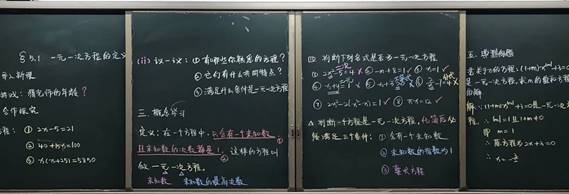 §5.1 一元一次方程的定义
导入新课
游戏：猜它你的年龄？
合作探究
程：① 2x-5=21
② 40+15x=100
③ x(x+25)=5850
(ii) 议一议：① 有哪些你熟悉的方程？
② 它们有什么共同特点？
③ 满足什么条件是一元一次方程
三、概念学习
定义：在一个方程中，只含有一个未知数，
且未知数的次数都是1，这样的方程叫
做一元一次方程。
未知数 未知数的最高次数
四、判断下列各式是否为一元一次方程
① 2x²-5=4 ✗ ② -m+8=1 ✓ ③ x=1 ✓
⑦ 2x²-2(x²-x)=1 ✓ ⑧ πx=12 ✓
△ 判断一个方程是一元一次方程，化简后必
须满足三个条件：① 含有一个未知数
② 未知数的指数为1
③ 整式方程
五、典型例题
若关于x的方程，(1+m)x^|m|+3=0
一元一次方程，求m的数和方程
的解
程，∴ |m|=1且1+m≠0
即 m=1
∴ 原方程为2x+3=0
∴ x=-3/2